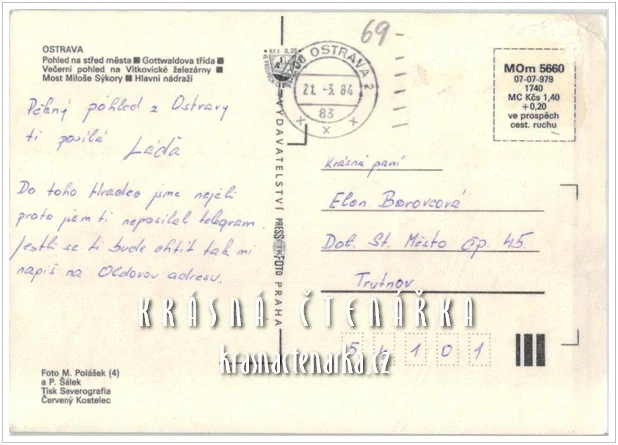 OSTRAVA
Pohled na střed města ■ Gottwaldova třída ■
Večerní pohled na Vítkovické železárny ■
Most Miloše Sýkory ■ Hlavní nádraží
69
OSTRAVA 2
21. -3. 84
83
x x x
MOm 5660
07-07-979
1740
MC Kčs 1,40
+0,20
ve prospěch
cest. ruchu
Pěkný pohled z Ostravy
ti posílá
Láďa
Do toho Hradce jsme nejeli
proto jsem ti neposílal telegram.
Jestli se ti bude chtít tak mi
napiš na Oldovu adresu.
VYDAVATELSTVÍ PRESSFOTO PRAHA
Krásná paní
Elen Borovcová
Dol. St. Město čp. 45.
Trutnov
54101
KRÁSNÁ ČTENÁŘKA
krasnactenarka.cz
Foto M. Polášek (4)
a P. Šálek
Tisk Saverografia
Červený Kostelec